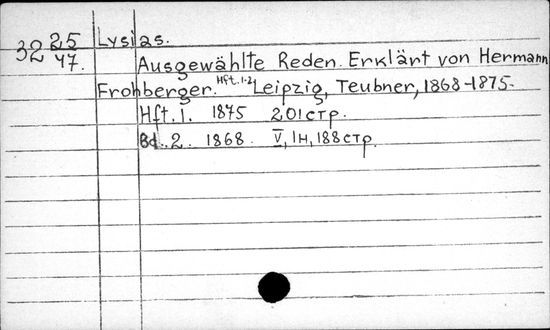 32 25/47. Lysias.
Ausgewählte Reden. Erklärt von Hermann
Frohberger. Hft. 1-2 Leipzig, Teubner, 1868-1875.
Hft. 1. 1875 201 стр.
Bd. 2. 1868. V, 1н, 188 стр.